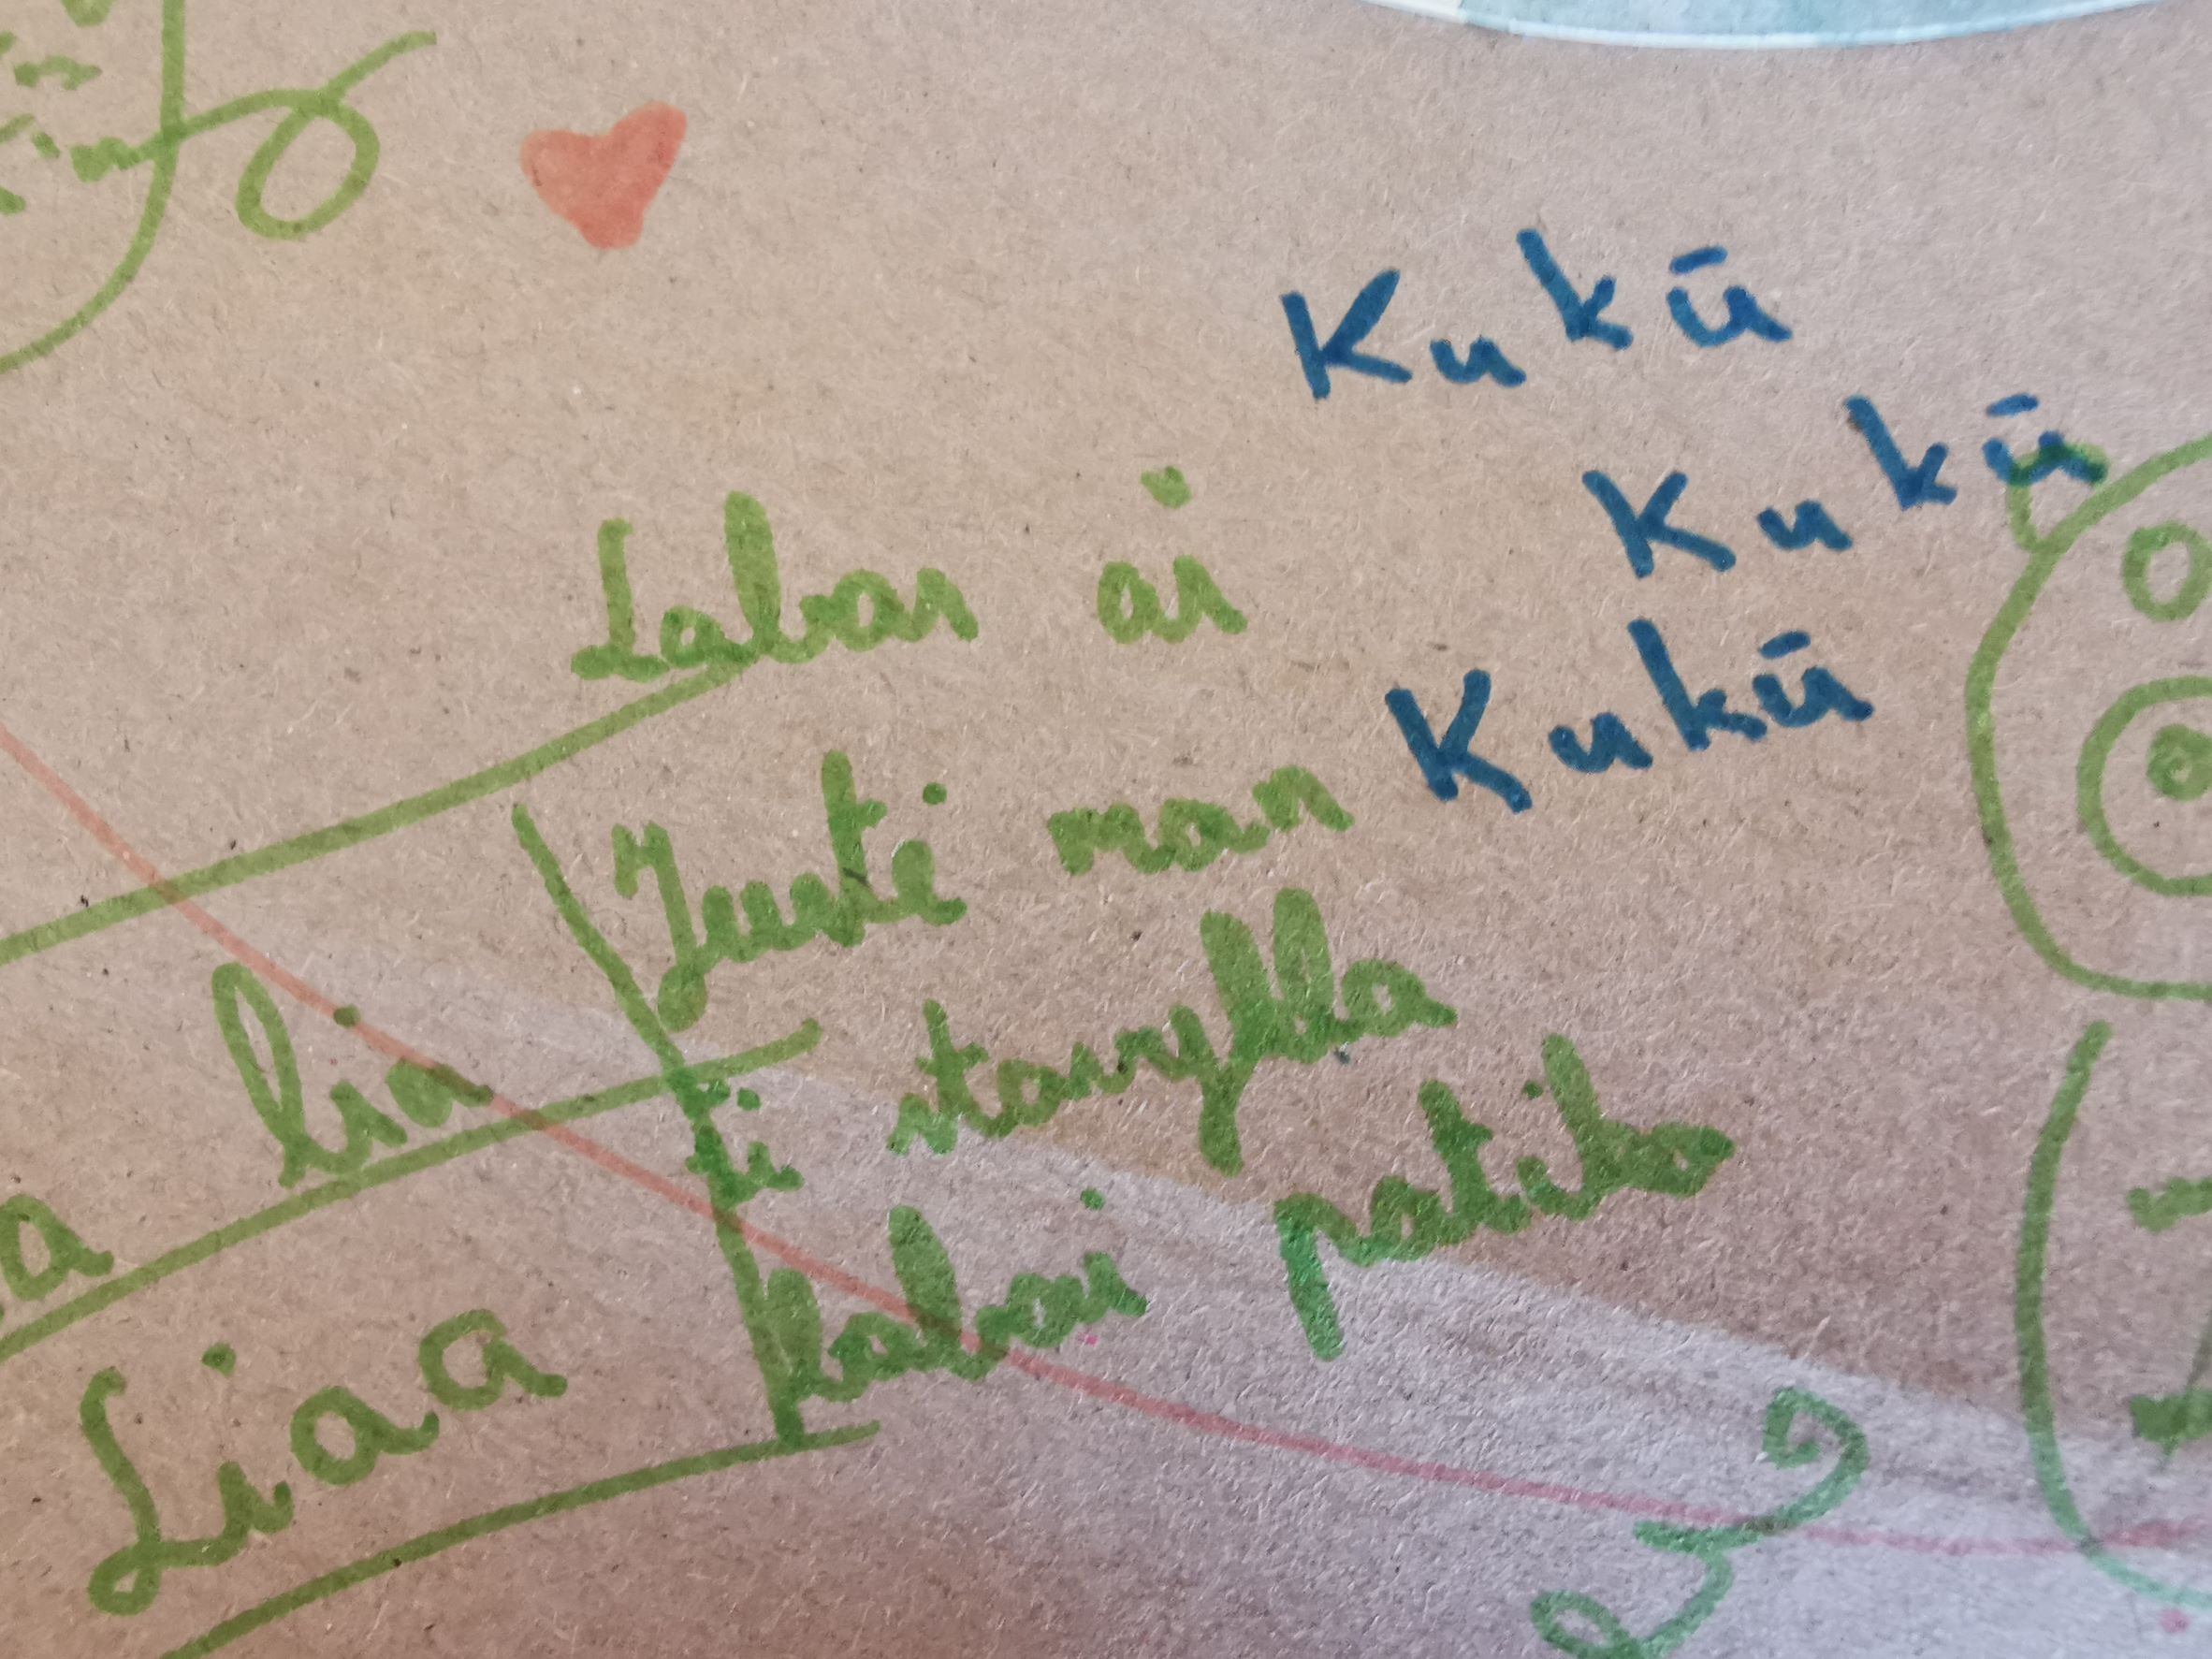 Kukū
Kukū
Kukū
Labas aš
Justė man
ši stovykla
labai patiko
lia
Liaa